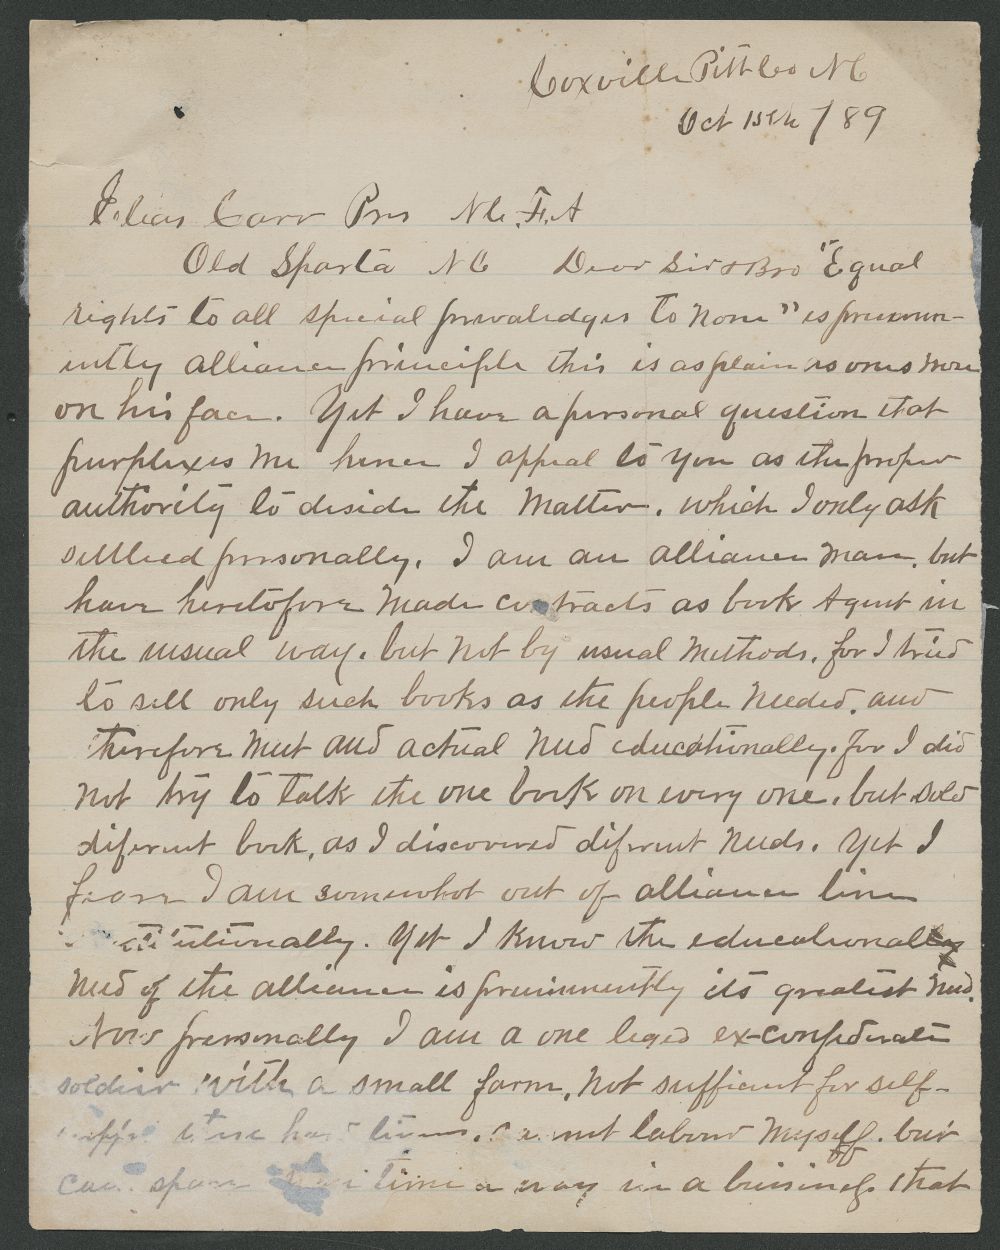 Coxville Pitt Co NC
Oct 15th / 89
Elias Carr Pres NC. F. A
Old Sparta NC Dear Sir & Bro "Equal
rights to all special privaledges to none" is preemin-
ently alliance principle this is as plain as ones nose
on his face. Yet I have a personal question that
purplexes me hence I appeal to you as the proper
authority to deside the matter. which I only ask
settled personally. I am an alliance man. but
have heretofore made contracts as book Agent in
the usual way. but not by usual methods. for I tried
to sell only such books as the people needed. and
therefore meet and actual need educationally. for I did
not try to talk the one book on every one. but sold
diferent book, as I discovered diferent needs. Yet I
fear I am somewhat out of alliance line
Yet I know the educational
need of the alliance is preeminently its greatest need.
Now personally I am a one leged ex-confederate
soldier with a small farm, not sufficient for self-
these hard times. not labour myself. but
can spare time away in a business that